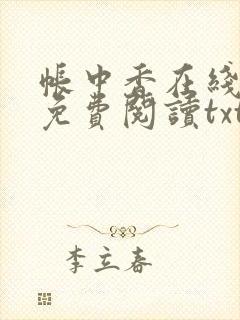 帳中香在綫
免費閱讀txt
李立春